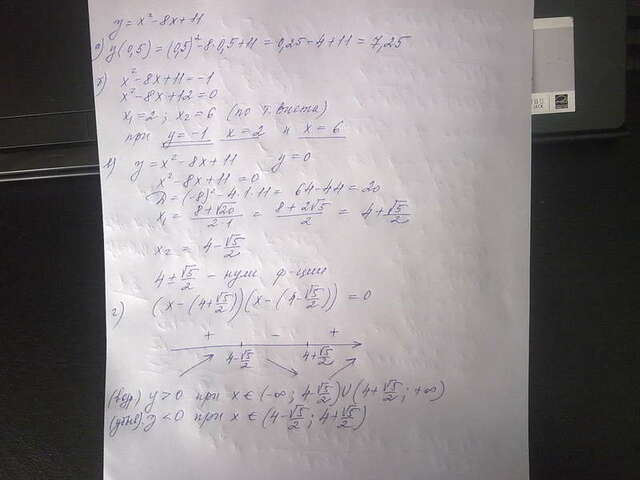 y = x² - 8x + 11
а) y(0,5) = (0,5)² - 8·0,5 + 11 = 0,25 - 4 + 11 = 7,25
б) x² - 8x + 11 = -1
x² - 8x + 12 = 0
x₁ = 2; x₂ = 6 (по т. Виета)
при y = -1 x = 2 и x = 6
в) y = x² - 8x + 11 y = 0
x² - 8x + 11 = 0
D = (-8)² - 4·1·11 = 64 - 44 = 20
x₁ = (8+√20)/(2·1) = (8+2√5)/2 = 4+√5/2
x₂ = 4-√5/2
4±√5/2 - нули ф-ции
г) (x-(4+√5/2))(x-(4-√5/2)) = 0
+ - +
4-√5/2 4+√5/2
y > 0 при x ∈ (-∞; 4-√5/2) ∪ (4+√5/2; +∞)
y < 0 при x ∈ (4-√5/2; 4+√5/2)